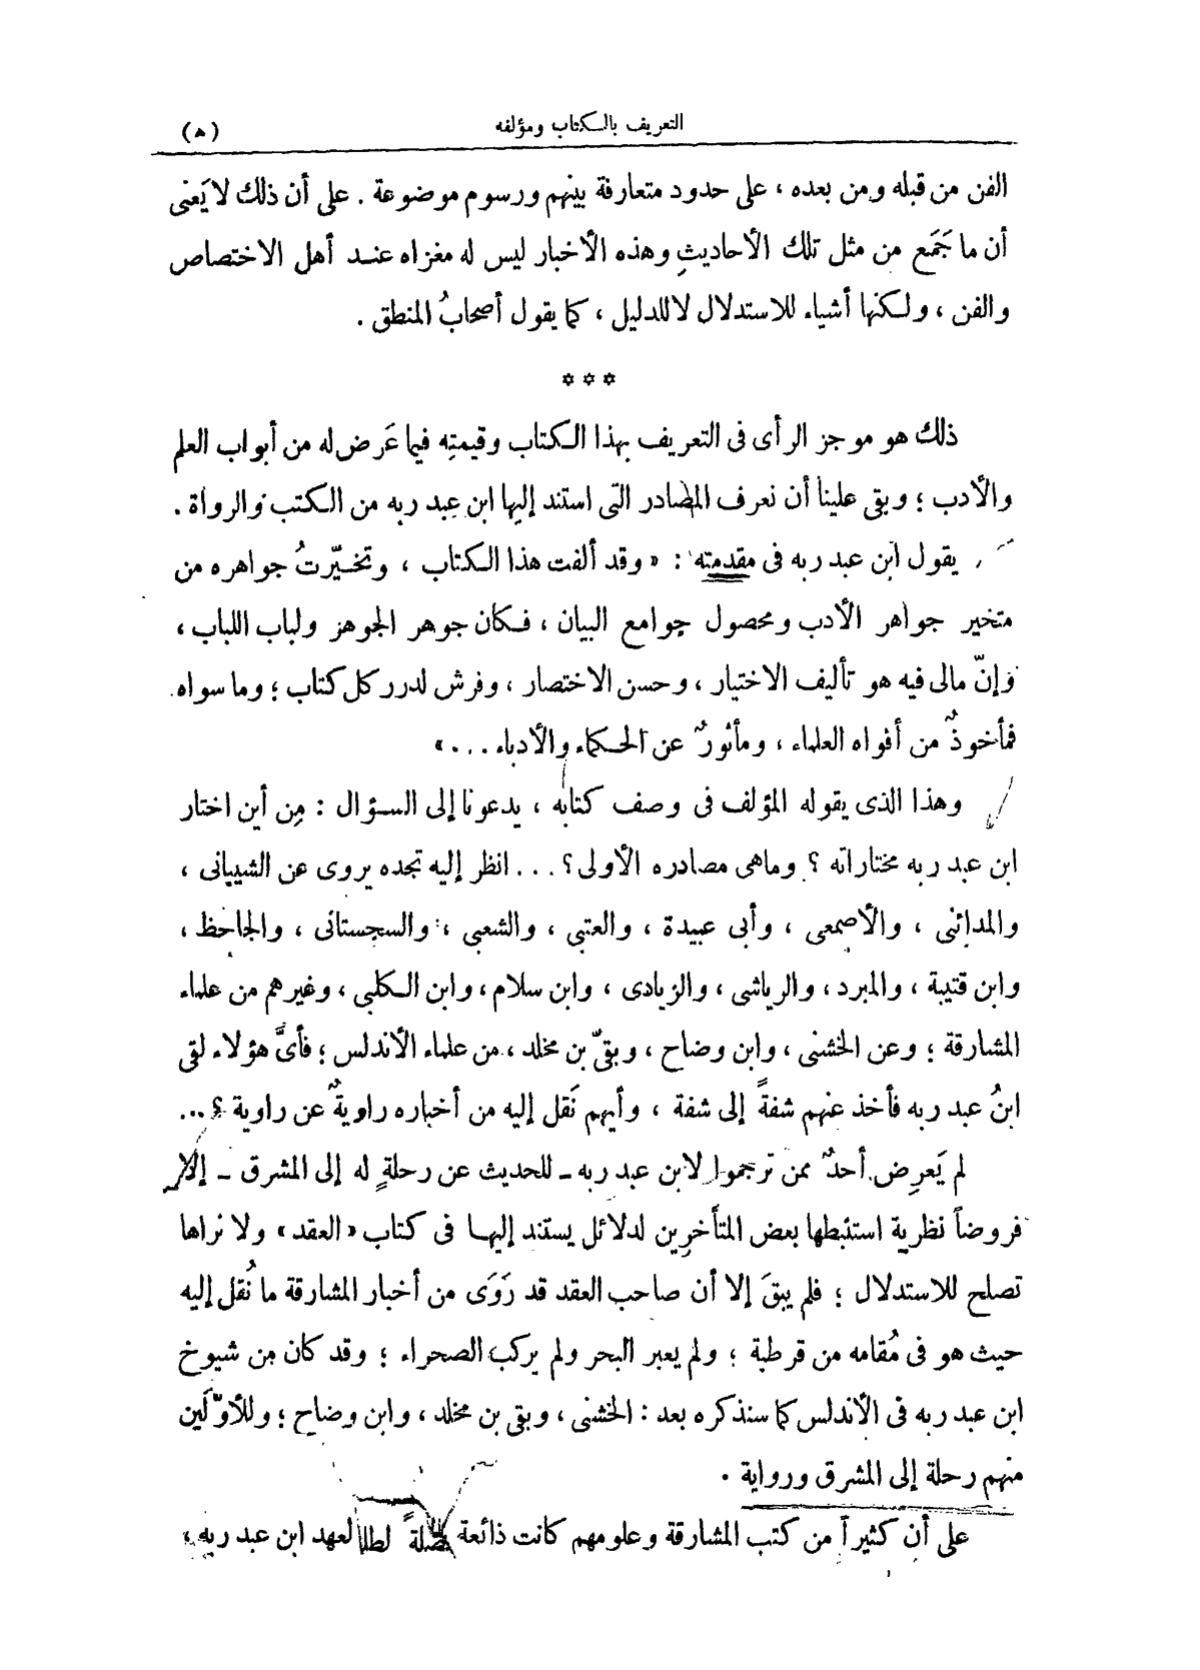 التعريف بالكتاب ومؤلفه
(ه)
الفن من قبله ومن بعده ، على حدود متعارفة بينهم ورسوم موضوعة . على أن ذلك لا يَعنى
أن ما جَمَع من مثل تلك الأحاديثِ وهذه الأخبار ليس له مغزاه عند أهل الاختصاص
والفن ، ولكنها أشياء للاستدلال لا للدليل ، كما يقول أصحابُ المنطق .
* * *
ذلك هو موجز الرأى فى التعريف بهذا الكتاب وقيمتِه فيما عَرض له من أبواب العلم
والأدب ؛ وبقى علينا أن نعرف المصادر التى استند إليها ابن عبد ربه من الكتب والرواة .
يقول ابن عبد ربه فى مقدمته : « وقد ألفت هذا الكتاب ، وتخيّرتُ جواهره من
متخير جواهر الأدب ومحصول جوامع البيان ، فكان جوهر الجوهر ولباب اللباب ،
وإنّ مالى فيه هو تأليف الاختيار ، وحسن الاختصار ، وفرش لدرر كل كتاب ؛ وما سواه
فمأخوذٌ من أفواه العلماء ، ومأثورٌ عن الحكماء والأدباء ... »
وهذا الذى يقوله المؤلف فى وصف كتابه ، يدعونا إلى السؤال : مِن أين اختار
ابن عبد ربه مختاراته ؟ وماهى مصادره الأولى ؟ ... انظر إليه تجده يروى عن الشيبانى ،
والمدائنى ، والأصمعى ، وأبى عبيدة ، والعتبى ، والشعبى ، والسجستانى ، والجاحظ ،
وابن قتيبة ، والمبرد ، والرياشى ، والزيادى ، وابن سلام ، وابن الكلبى ، وغيرهم من علماء
المشارقة ؛ وعن الخشنى ، وابن وضاح ، وبقىّ بن مخلد ، من علماء الأندلس ؛ فأىَّ هؤلاء لقى
ابنُ عبد ربه فأخذ عنهم شفةً إلى شفة ، وأيهم نَقل إليه من أخباره راويةٌ عن راوية ؟ ...
لم يَعرِض أحدٌ ممن ترجموا لابن عبد ربه ـ للحديث عن رحلةٍ له إلى المشرق ـ إلا
فروضاً نظرية استنبطها بعض المتأخرين لدلائل يستند إليها فى كتاب « العقد » ولا نراها
تصلح للاستدلال ؛ فلم يبقَ إلا أن صاحب العقد قد رَوَى من أخبار المشارقة ما نُقل إليه
حيث هو فى مُقامه من قرطبة ؛ ولم يعبر البحر ولم يركب الصحراء ؛ وقد كان من شيوخ
ابن عبد ربه فى الأندلس كما سنذكره بعد : الخشنى ، وبقى بن مخلد ، وابن وضاح ؛ وللأوّلَين
منهم رحلة إلى المشرق ورواية .
على أن كثيراً من كتب المشارقة وعلومهم كانت ذائعة لعهد ابن عبد ربه ،